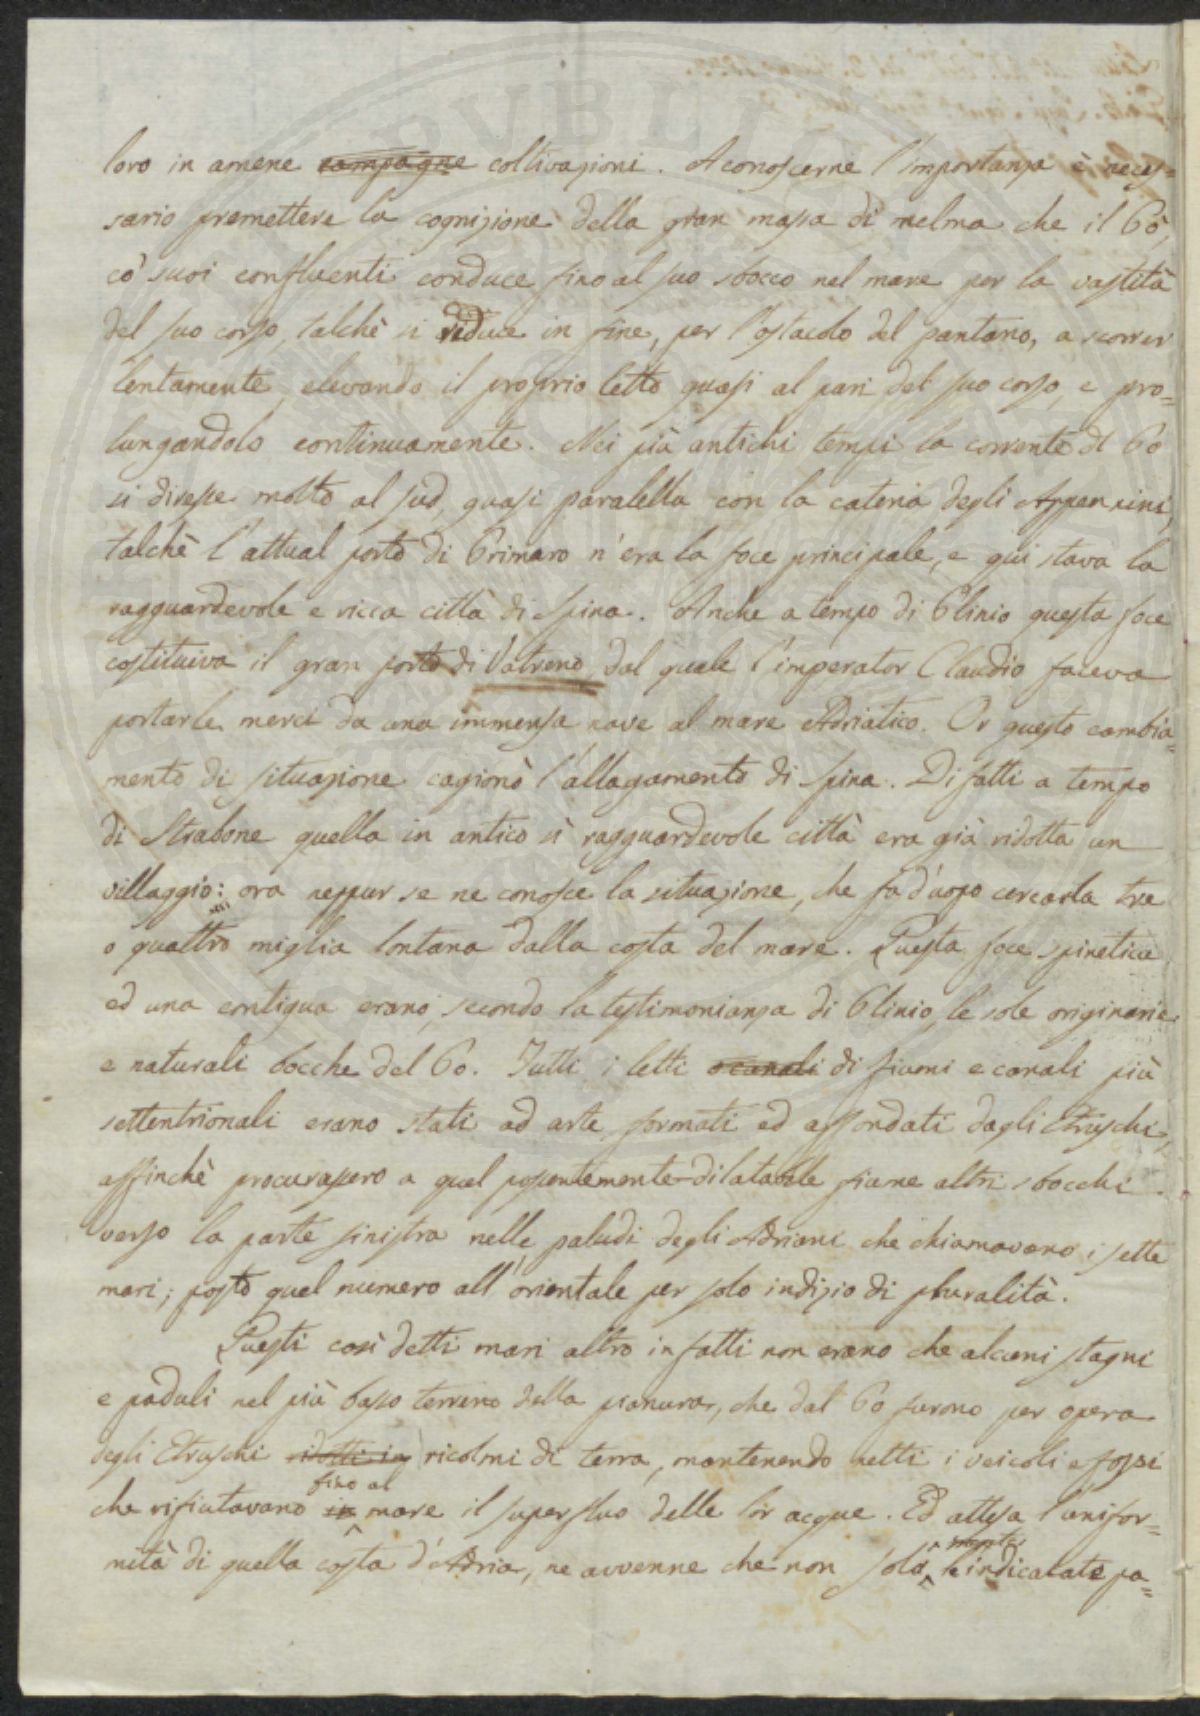 loro in amene campagne coltivazioni. A conoscerne l'importanza è neces=
sario premettere la cognizione della gran massa di melma che il Pò,
cò suoi confluenti conduce fino al suo sbocco nel mare per la vastità
del suo corso, talchè si riduce in fine, per l'ostacolo del pantano, a scorrer
lentamente, elevando il proprio letto quasi al pari del suo corso, e pro=
lungandolo continuamente. Nei più antichi tempi la corrente del Po
si diresse molto al sud, quasi paralella con la catena degli Appennini,
talchè l'attual porto di Primaro n'era la foce principale, e qui stava la
ragguardevole e ricca città di Spina. Anche a tempo di Plinio questa foce
costituiva il gran porto di Vatreno dal quale l'imperator Claudio faceva
portar le merci da una immensa nave al mare Adriatico. Or questo cambia=
mento di situazione cagionò l'allagamento di Spina. Difatti a tempo
di Strabone quella in antico sì ragguardevole città era già ridotta un
villaggio: ora neppur se ne conosce la situazione, che fa d'uopo cercarla tre
o quattro miglia lontana dalla costa del mare. Questa foce spinetica
ed una contigua erano, secondo la testimonianza di Plinio, le sole originarie
e naturali bocche del Po. Tutti i letti o canali di fiumi e canali più
settentrionali erano stati ad arte formati ed affondati dagli Etruschi,
affinchè procurassero a quel possentemente-dilatabile fiume altri sbocchi
verso la parte sinistra nelle paludi degli Adriani che chiamavano i sette
mari; posto quel numero all'orientale per solo indizio di pluralità.
Questi così detti mari altro in fatti non erano che alcuni stagni
e paduli nel più basso terreno della pianura, che dal Po furono per opera
degli Etruschi ridotti in ricolmi di terra, mantenendo netti i veicoli e fossi
fino al
che rifiutavano in mare il superfluo delle lor acque. Ed attesa l'unifor=
mente
mità di quella costa d'Adria, ne avvenne che non sola le indicatate pa=